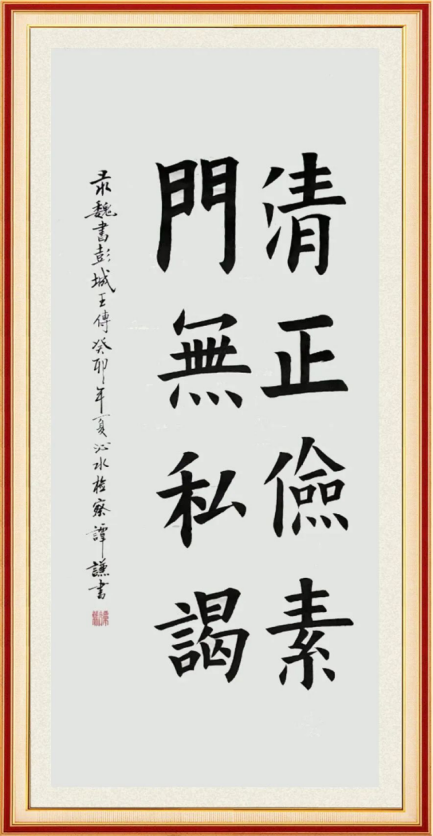 清正儉素
門無私謁
录魏書彭城王傳癸卯年夏沁水檢察譚謙書